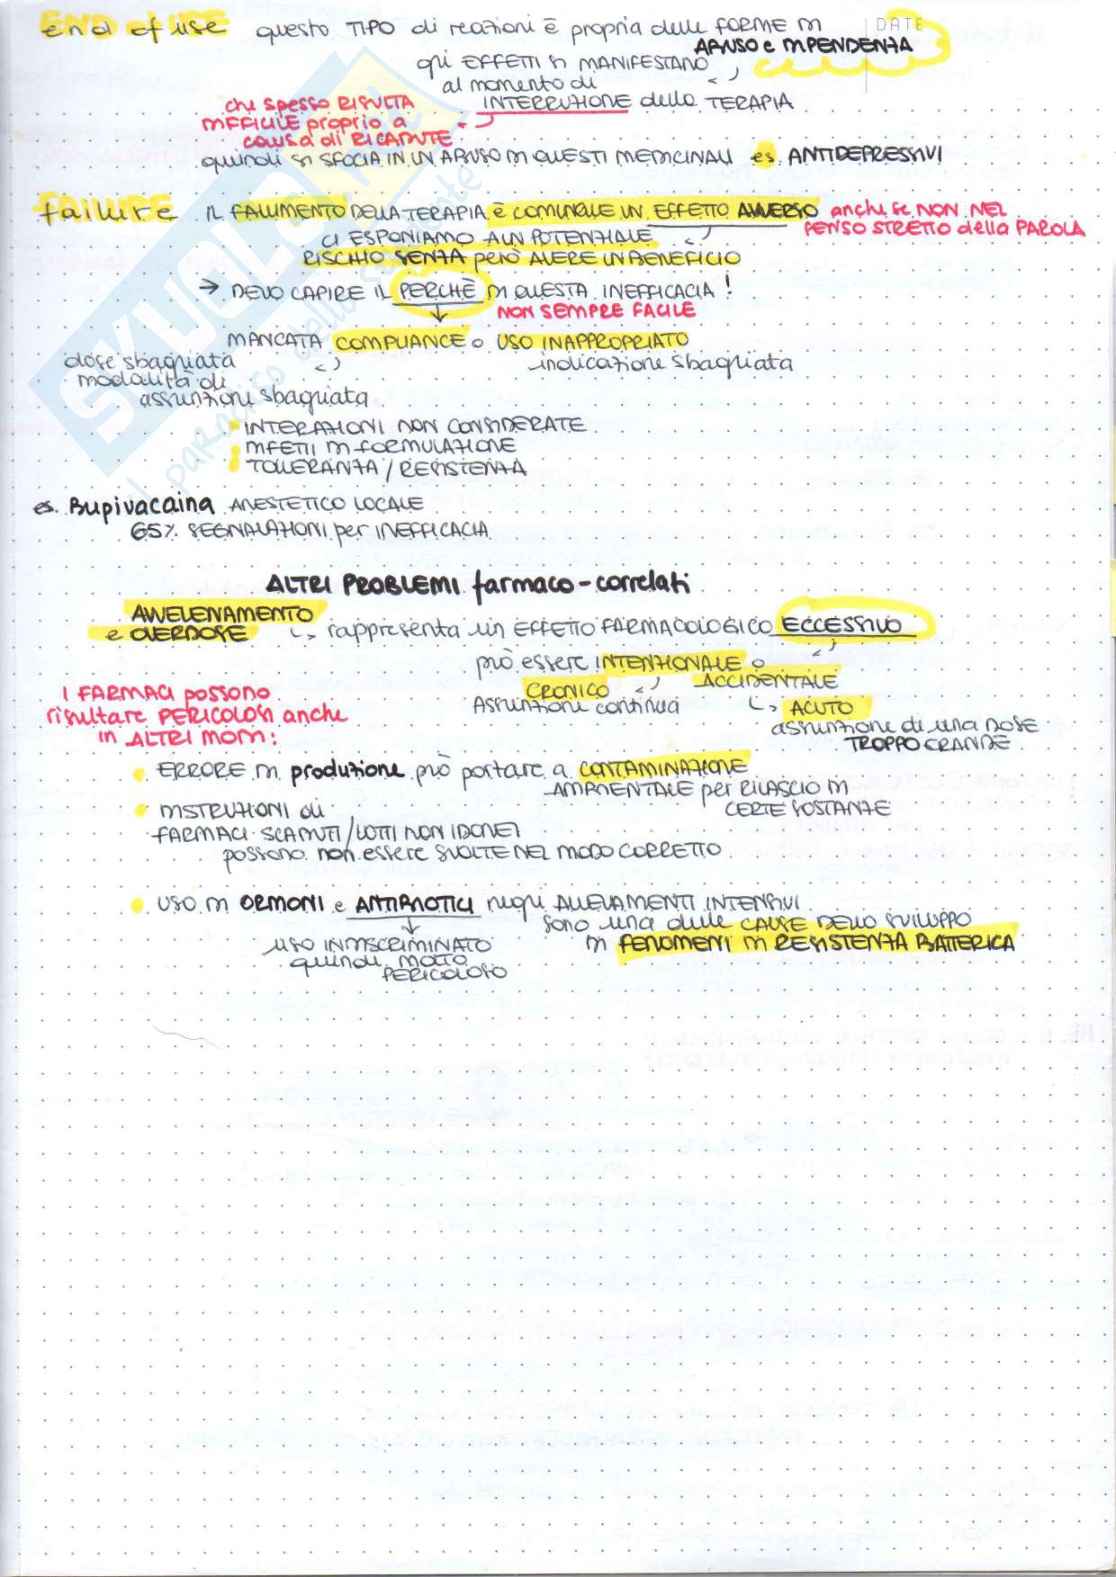 end of use questo TIPO di reazioni è propria delle FORME DI
DATE
ABUSO e DIPENDENZA
gli EFFETTI SI MANIFESTANO
al momento di
INTERRUZIONE della TERAPIA
che spesso RISULTA
DIFFICILE proprio a
causa di RICADUTE
quindi si SFOCIA IN UN ABUSO DI QUESTI MEDICINALI es. ANTIDEPRESSIVI
failure IL FALLIMENTO DELLA TERAPIA è COMUNQUE UN EFFETTO AVVERSO anche se NON NEL
SENSO STRETTO della PAROLA
CI ESPONIAMO A UN POTENZIALE
RISCHIO SENZA però AVERE UN BENEFICIO
→ DEVO CAPIRE IL PERCHÈ DI QUESTA INEFFICACIA!
NON SEMPRE FACILE
MANCATA COMPLIANCE o USO INAPPROPRIATO
dose sbagliata
indicazione sbagliata
modalità di
assunzione sbagliata
• INTERAZIONI NON CONSIDERATE
• DIFETTI DI FORMULAZIONE
• TOLLERANZA / RESISTENZA
es. Bupivacaina ANESTETICO LOCALE
65% SEGNALAZIONI per INEFFICACIA
ALTRI PROBLEMI farmaco-correlati
AVVELENAMENTO
e OVERDOSE rappresenta un EFFETTO FARMACOLOGICO ECCESSIVO
può essere INTENZIONALE o
ACCIDENTALE
CRONICO
Assunzione continua
ACUTO
assunzione di una DOSE
TROPPO GRANDE
I FARMACI possono
risultare PERICOLOSI anche
in ALTRI MODI:
• ERRORE DI produzione può portare a CONTAMINAZIONE
AMBIENTALE per RILASCIO DI
CERTE SOSTANZE
• DISTRUZIONI di
FARMACI SCADUTI / LOTTI NON IDONEI
possono non essere SVOLTE NEL MODO CORRETTO
• USO DI ORMONI e ANTIBIOTICI negli ALLEVAMENTI INTENSIVI
sono una delle CAUSE DELLO SVILUPPO
DI FENOMENI DI RESISTENZA BATTERICA
USO INDISCRIMINATO
quindi MOLTO
PERICOLOSO
SKUOLA
il paradiso dello studente